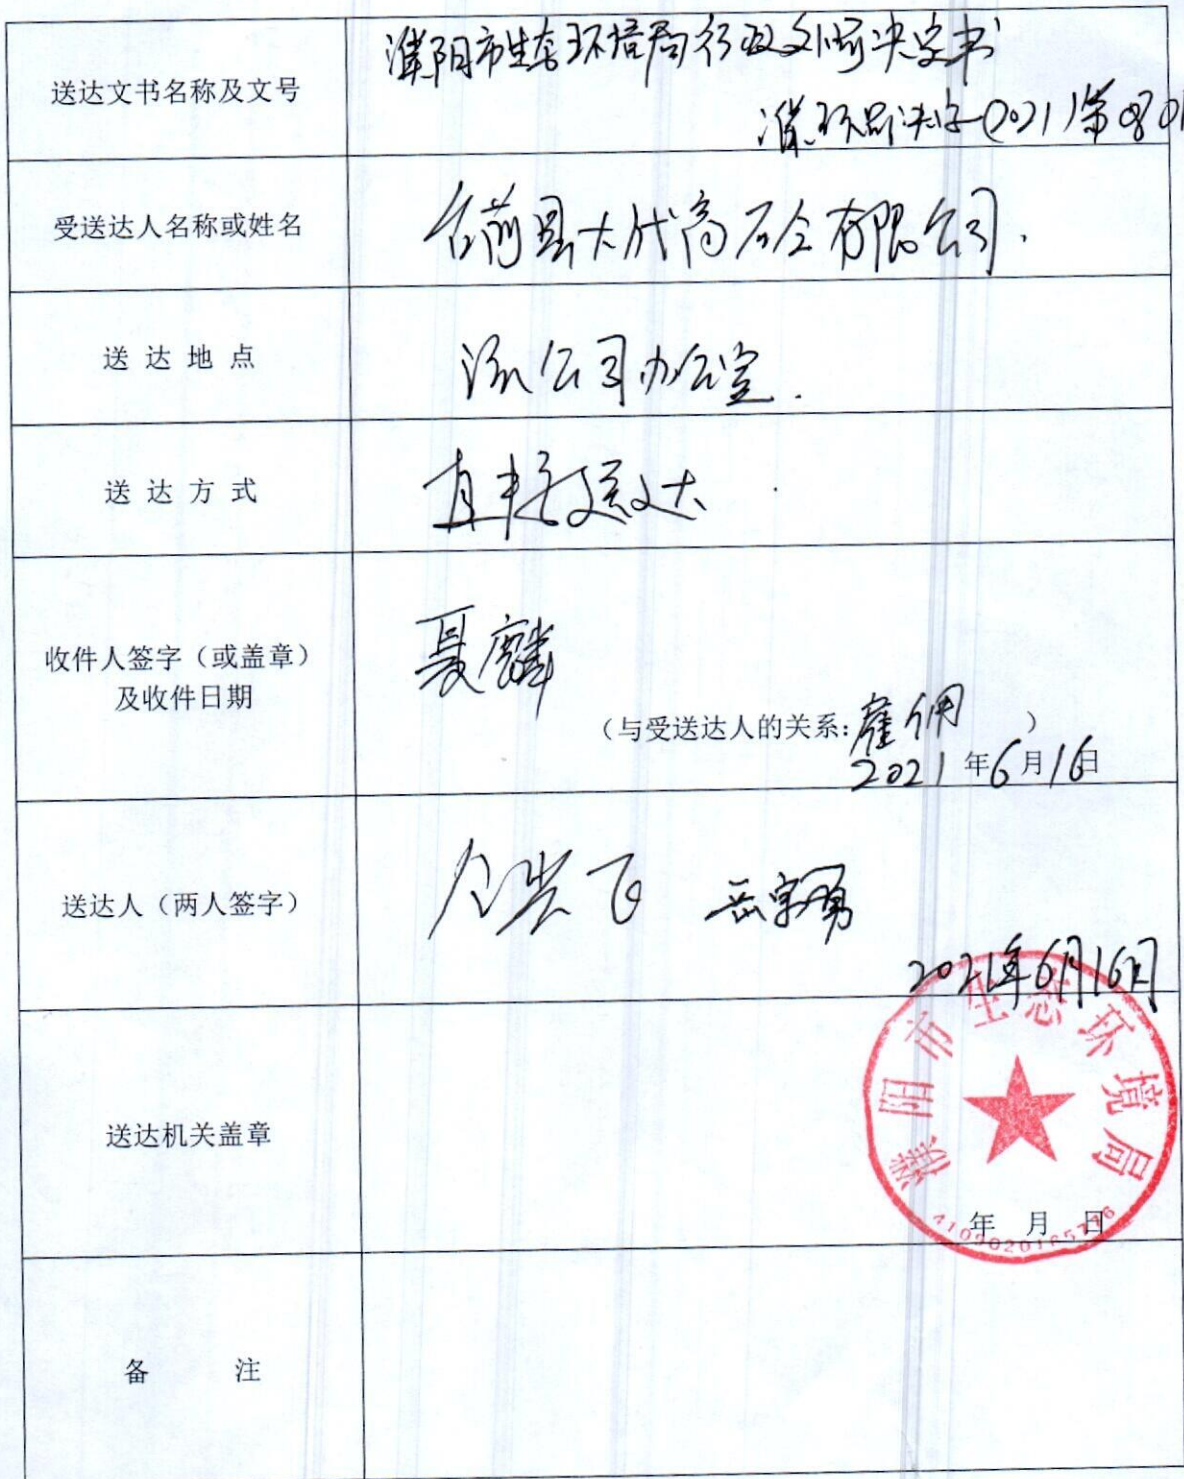 送达文书名称及文号
濮阳市生态环境局行政处罚决定书
濮环罚决字(2021)第
受送达人名称或姓名
台前县大代商砼有限公司.
送达地点
该公司办公室.
送达方式
直接送达
收件人签字（或盖章）
及收件日期
聂麟
（与受送达人的关系:雇佣）
2021年6月16日
送达人（两人签字）
仝 飞 岳家勇
2021年6月16日
送达机关盖章
濮阳市生态环境局
年 月 日
备 注